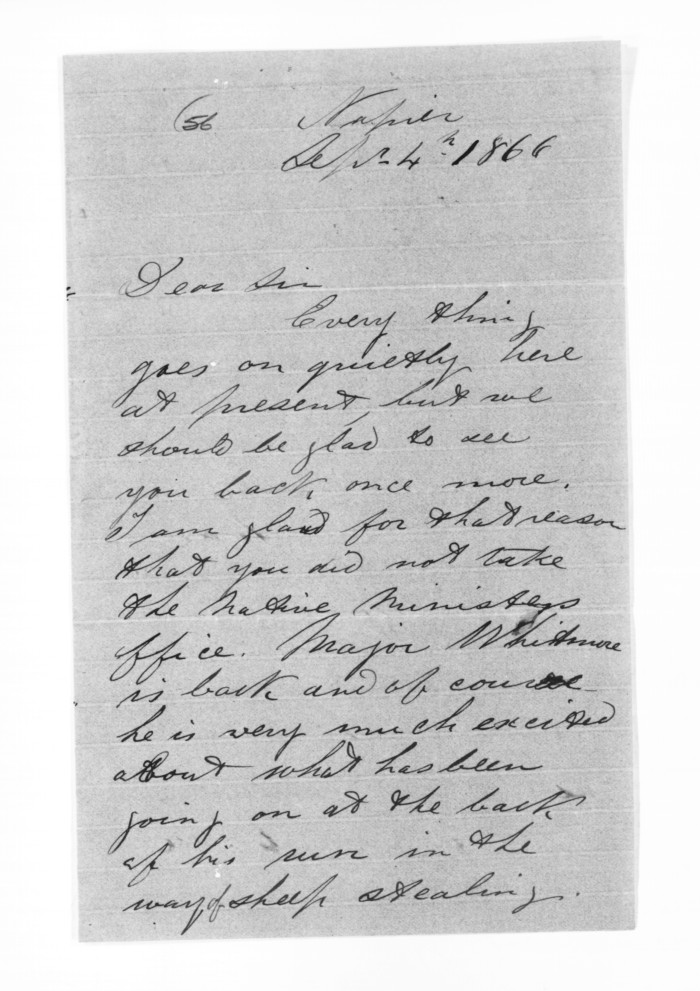 (56 Napier
Sepr. 4th. 1866
Dear Sir
Every thing
goes on quietly here
at present, but we
should be glad to see
you back once more.
I am glad for that reason
that you did not take
the Native Ministers
office. Major Whitmore
is back and of course
he is very much excited
about what has been
going on at the back
of his run in the
way of sheep stealing.